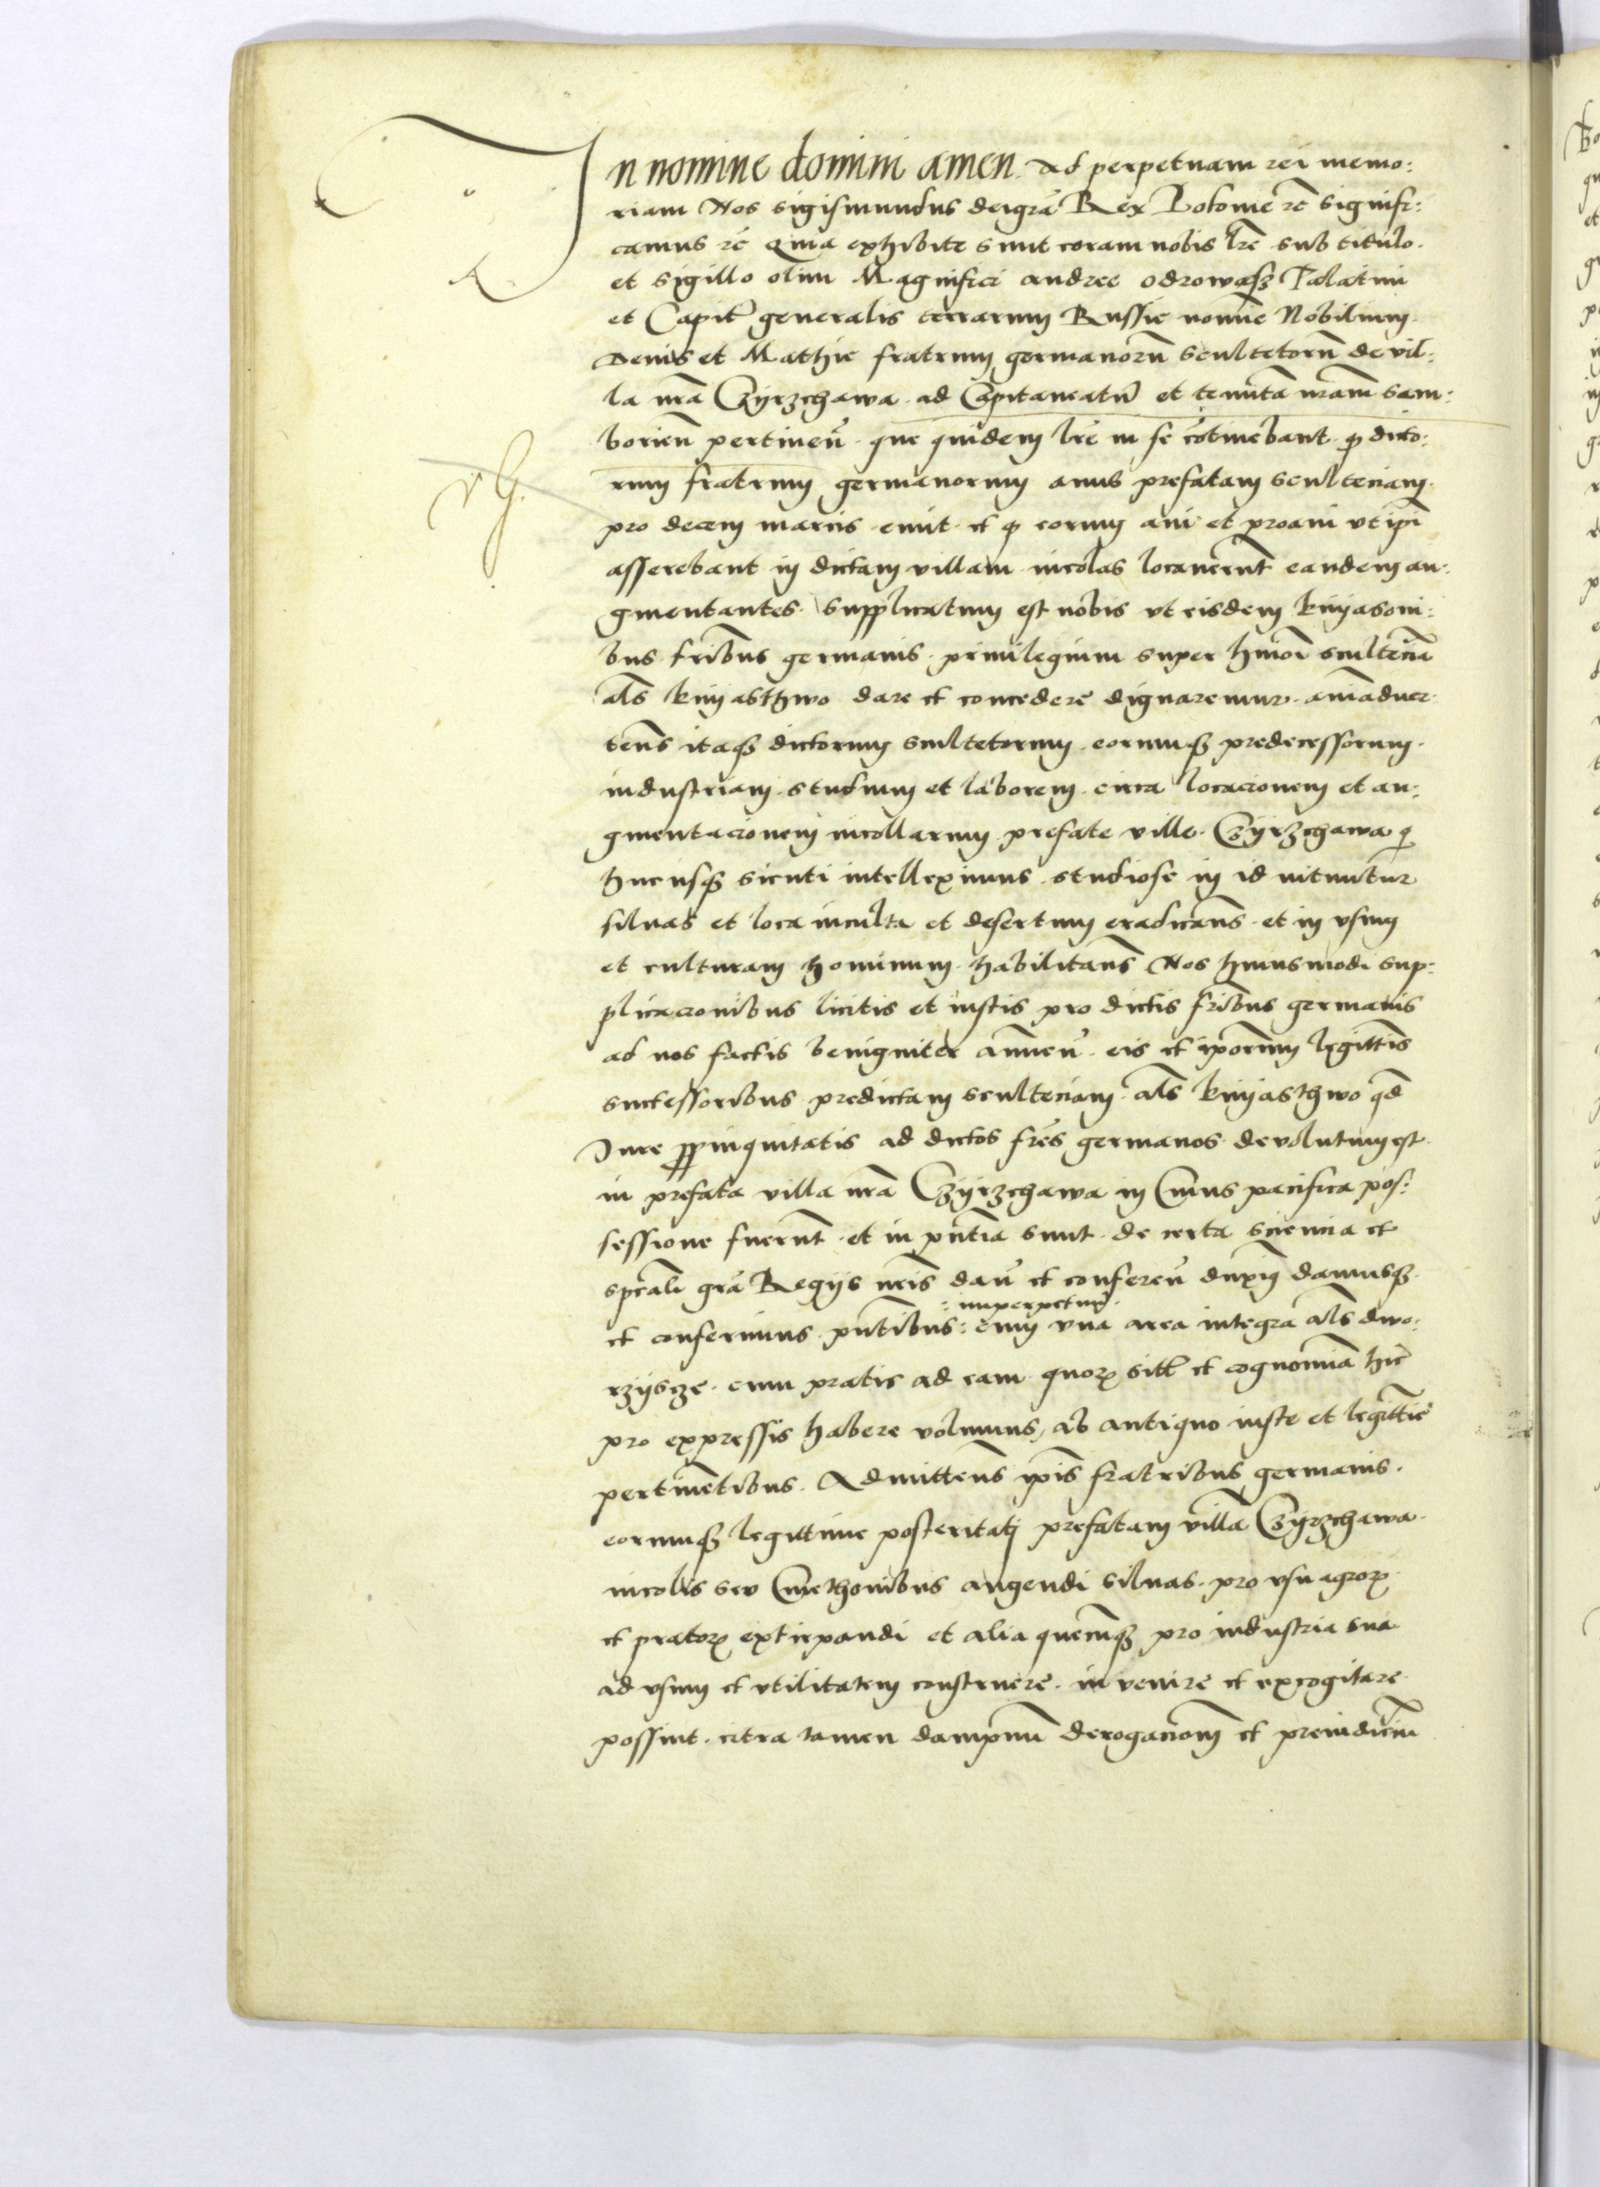 In nomine domini amen. Ad perpetuam rei memo:
riam Nos Sigismundus dei grā Rex Polonie rc̄ Signifi:
camus rc̄ Quia exhibite sunt coram nobis lrē sub titulo.
et sigillo olim Magnifici andree odrowąsch Palatini
et Capitī generalis terrarum Russie nomīe Nobilium.
Denis et Mathie fratrum germanorū scultetorū de vil:
la nrā Czyrzchawa ad Capitaneatū et tenutā nrām Sam:
borieñ pertineñ. que quidem lrē in se cōtinebant. q̄ dicto:
rum fratrum germanorum auus prefatam scultetiam.
pro decem marcis emit. et q̄ eorum aui et proaui vt ip̄i
asserebant in dictam villam incolas locauerūt eandem au:
gmentantes. Supplicatum est nobis vt eisdem knyasoni:
bus fribus germanis. priuilegium super hmōi scultetiā
als knyasthwo dare et concedere dignaremur. aniāduer
tens itaq; dictorum scultetorum. eorumq; predecessorum.
industriam. studium et laborem. circa locacionem et au:
gmentacionem incollarum. prefate ville. Czyrzchawa q̄
hucusq; sicuti intelleximus studiose in id nituntur
siluas et loca inculta et desertum eradicans. et in vsum
et culturam hominum. habilitans Nos huiusmodi sup:
plicacionibus licitis et iustis pro dictis fribus germanis
ad nos factis benigniter annueñ. eis et ip̄orum legittis
successoribus predictam scultetiam. als knyasthwo qd
Iure ppinquitatis ad dictos fres germanos devolutum est
in prefata villa nrā Czyrzchawa in Cuius pacifica pos:
sessione fuerūt. et in pn̄tia sunt. de certa sciencia et
spēali grā Regijs nrīs dañ et confereñ duxim damusq;
: inperpetuū.
et conferimus pn̄tibus: cum vna area integra als dwo:
rzyscze. cum pratis ad eam quorꝫ sitū et cognomīa hic
pro expressis habere volumus, ab antiquo iuste et legittīe
pertinētibus. Admittens ip̄is fratribus germanis.
eorumq; legittime posteritati prefatam villā Czyrzchawa.
incolis seu Cmethonibus augendi siluas. pro vsu agrorꝫ
et pratorꝫ extirpandi et alia quecūq; pro industria sua
ad vsum et vtilitatem construere. invenire et excogitare
possint. citra tamen dampnū derogacionem et preiudiciū